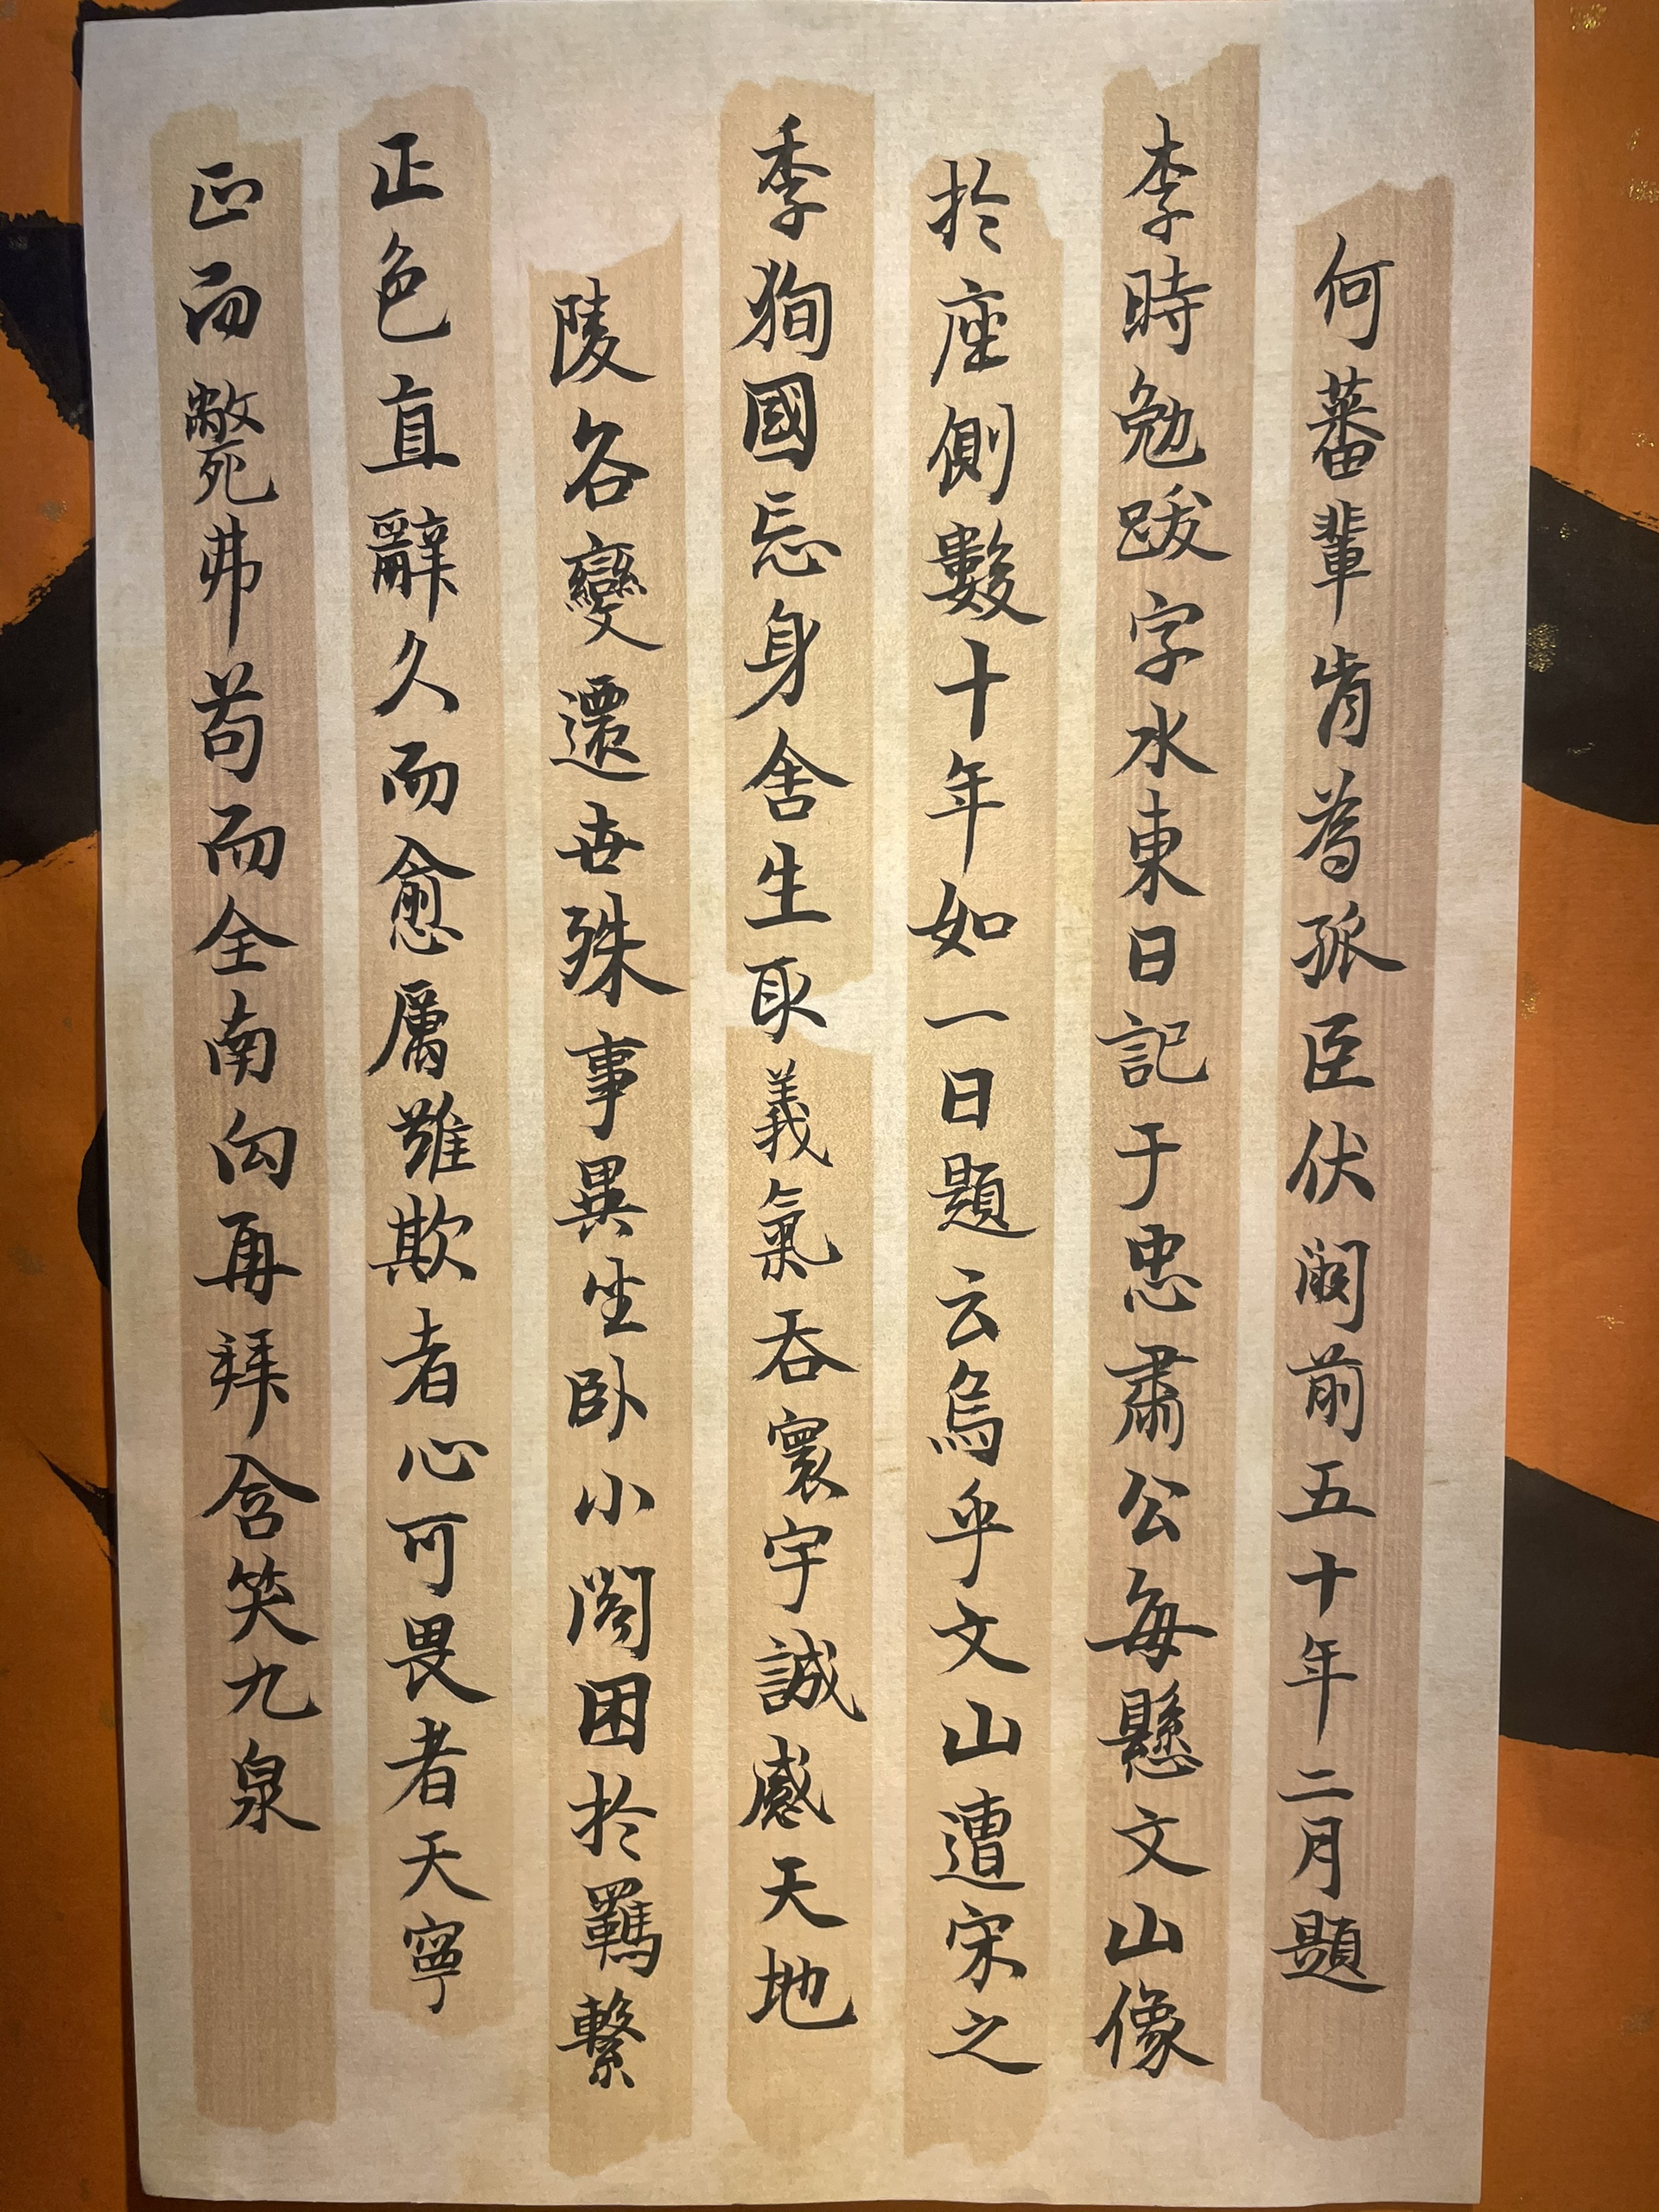 何蕃輩肯為孤臣伏闕前五十年二月題
李時勉跋字水東日記于忠肅公每懸文山像
於座側數十年如一日題云烏乎文山遭宋之
季狥國忘身舍生取義氣吞寰宇誠感天地
陵谷變遷世殊事異坐卧小閣困於羈繫
正色直辭久而愈厲難欺者心可畏者天寧
正而斃弗苟而全南向再拜含笑九泉